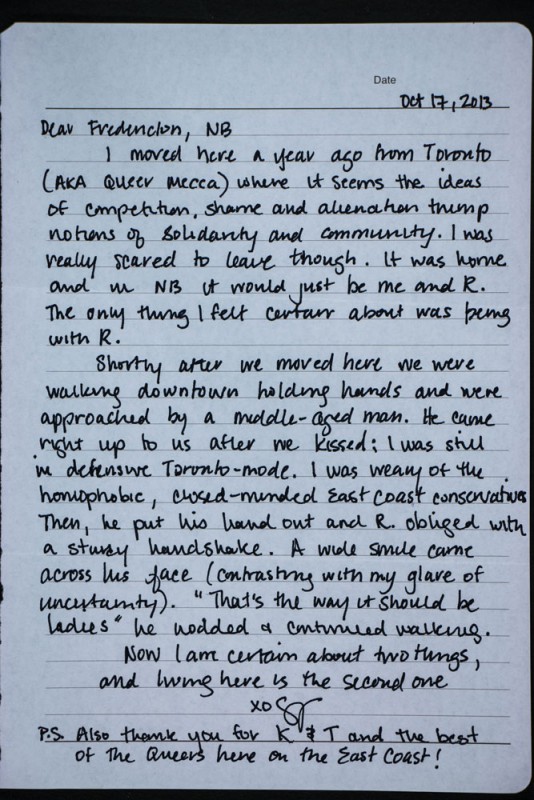 Date
Oct 17, 2013
Dear Fredericton, NB
I moved here a year ago from Toronto
(AKA Queer Mecca) where it seems the ideas
of competition, shame and alienation trump
notions of solidarity and community. I was
really scared to leave though. It was home
and in NB it would just be me and R.
The only thing I felt certain about was being
with R.
Shortly after we moved here we were
walking downtown holding hands and were
approached by a middle-aged man. He came
right up to us after we kissed; I was still
in defensive Toronto-mode. I was weary of the
homophobic, closed-minded East Coast conservatives.
Then, he put his hand out and R. obliged with
a sturdy handshake. A wide smile came
across his face (contrasting with my glare of
uncertainty). "That's the way it should be
ladies" he nodded & continued walking.
Now I am certain about two things,
and living here is the second one
xo
P.S. Also thank you for K & T and the best
of The Queers here on the East Coast!